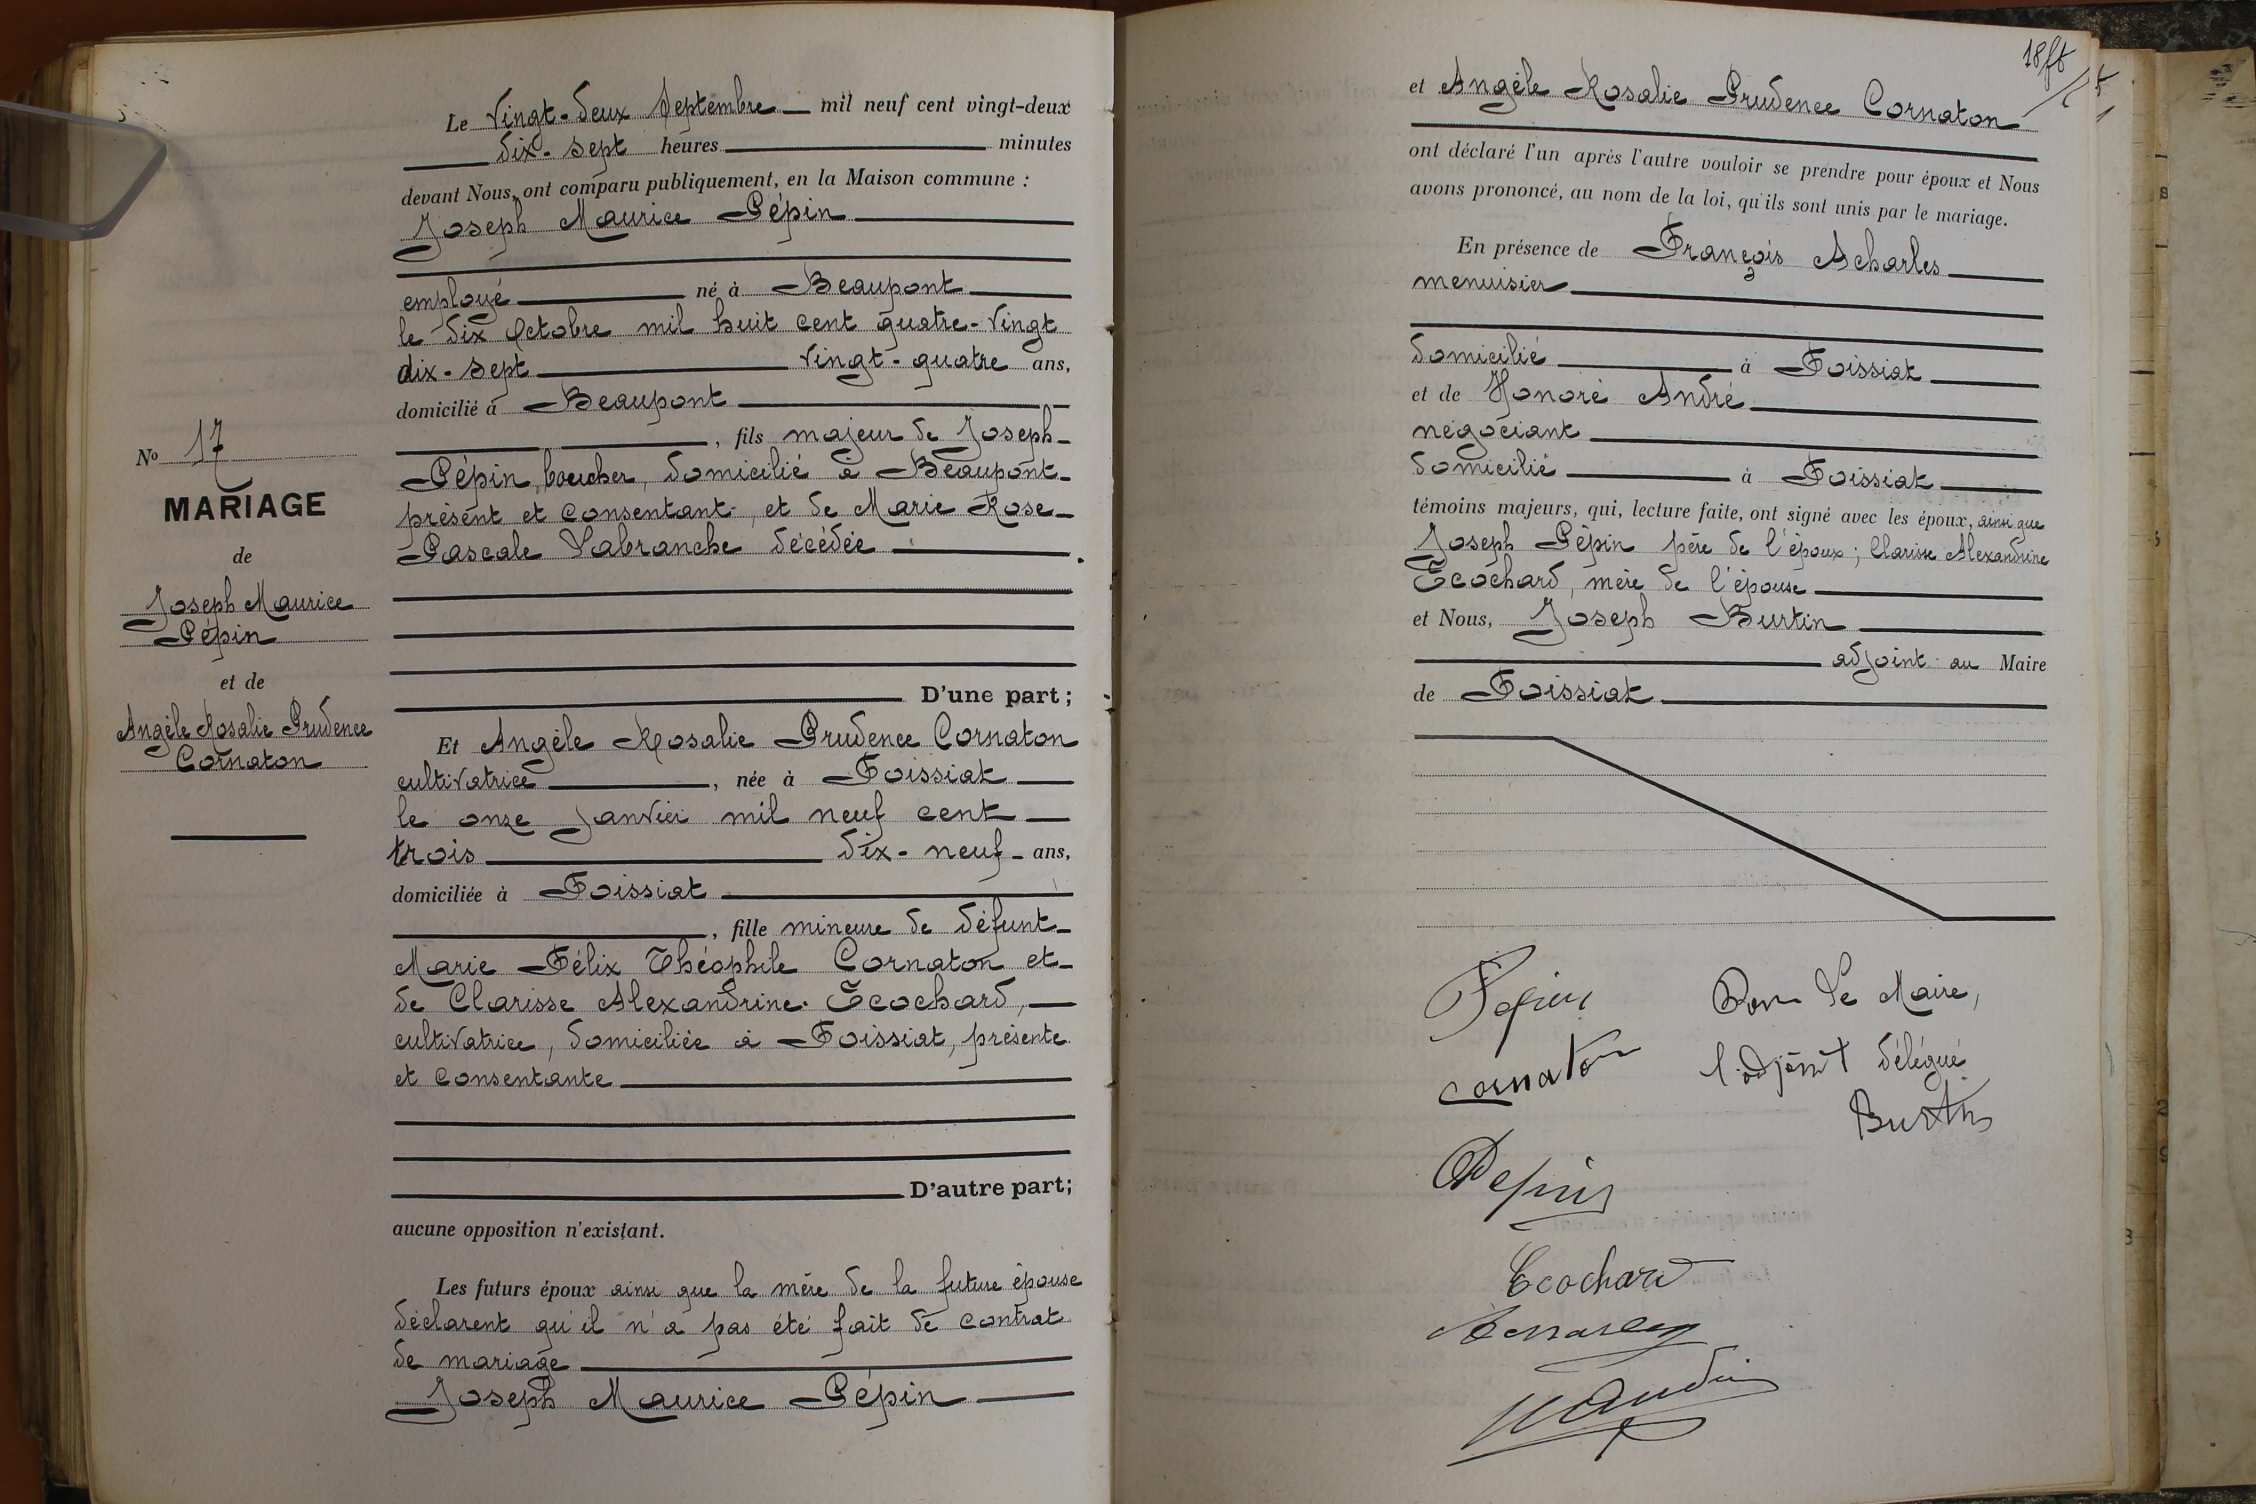 Le vingt-deux Septembre mil neuf cent vingt-deux
dix-sept heures minutes
devant Nous, ont comparu publiquement, en la Maison commune :
Joseph Maurice Pépin
employé né à Beaupont
le dix Octobre mil huit cent quatre-vingt
dix-sept vingt-quatre ans,
domicilié à Beaupont
, fils majeur de Joseph
Pépin, boucher, domicilié à Beaupont
présent et consentant, et de Marie Rose
Pascale Labranche décédée
D'une part ;
Et Angèle Rosalie Prudence Cornaton
cultivatrice, née à Foissiat
le onze Janvier mil neuf cent
trois dix-neuf ans,
domiciliée à Foissiat
, fille mineure de défunt
Marie Félix Théophile Cornaton et
de Clarisse Alexandrine Ecochard,
cultivatrice, domiciliée à Foissiat, présente
et consentante
D'autre part ;
aucune opposition n'existant.
Les futurs époux ainsi que la mère de la future épouse
déclarent qu'il n'a pas été fait de contrat
de mariage
Joseph Maurice Pépin
No 17
MARIAGE
de
Joseph Maurice
Pépin
et de
Angèle Rosalie Prudence
Cornaton
18 ft
et Angèle Rosalie Prudence Cornaton
ont déclaré l'un après l'autre vouloir se prendre pour époux et Nous
avons prononcé, au nom de la loi, qu'ils sont unis par le mariage.
En présence de François Acharles
menuisier
domicilié à Foissiat
et de Honoré André
négociant
domicilié à Foissiat
témoins majeurs, qui, lecture faite, ont signé avec les époux, ainsi que
Joseph Pépin père de l'époux ; Clarisse Alexandrine
Ecochard, mère de l'épouse
et Nous, Joseph Burtin
adjoint au Maire
de Foissiat
Pepin
Pour Le Maire,
cornaton
l'adjoint délégué
Burtin
Pepin
Ecochard